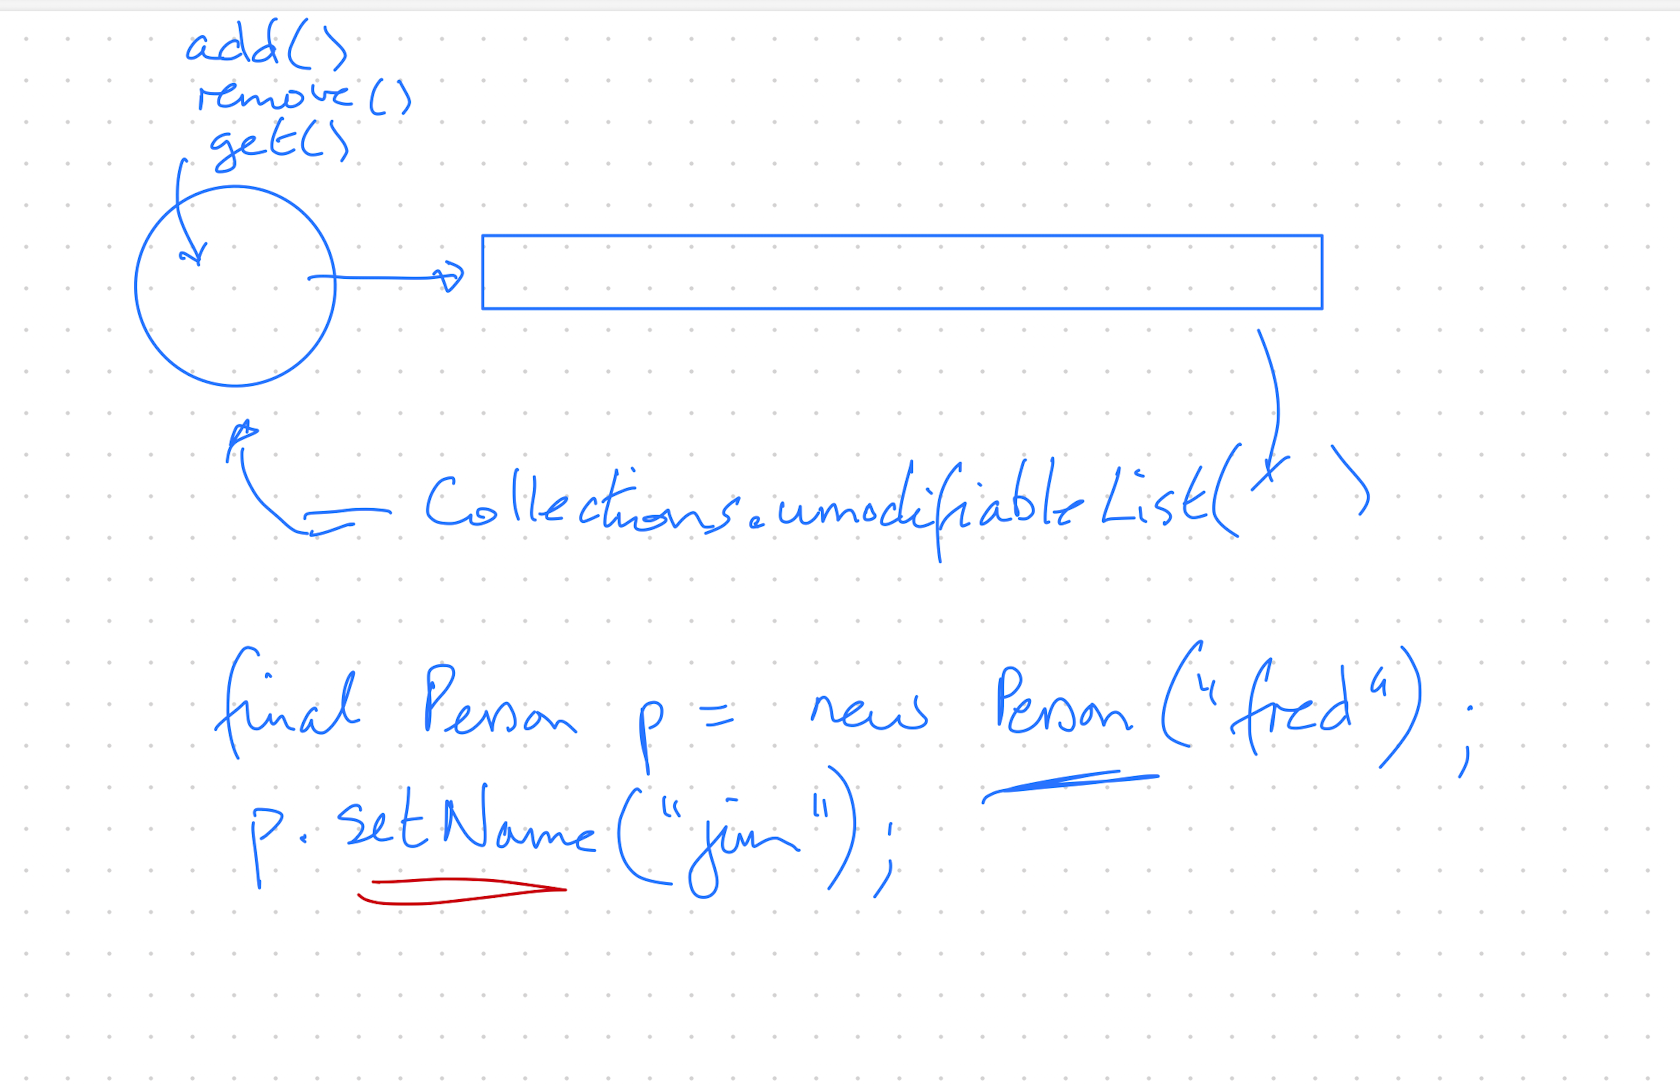 add()
remove()
get()
Collections.unmodifiableList( )
final Person p = new Person("fred");
p.setName("jim");